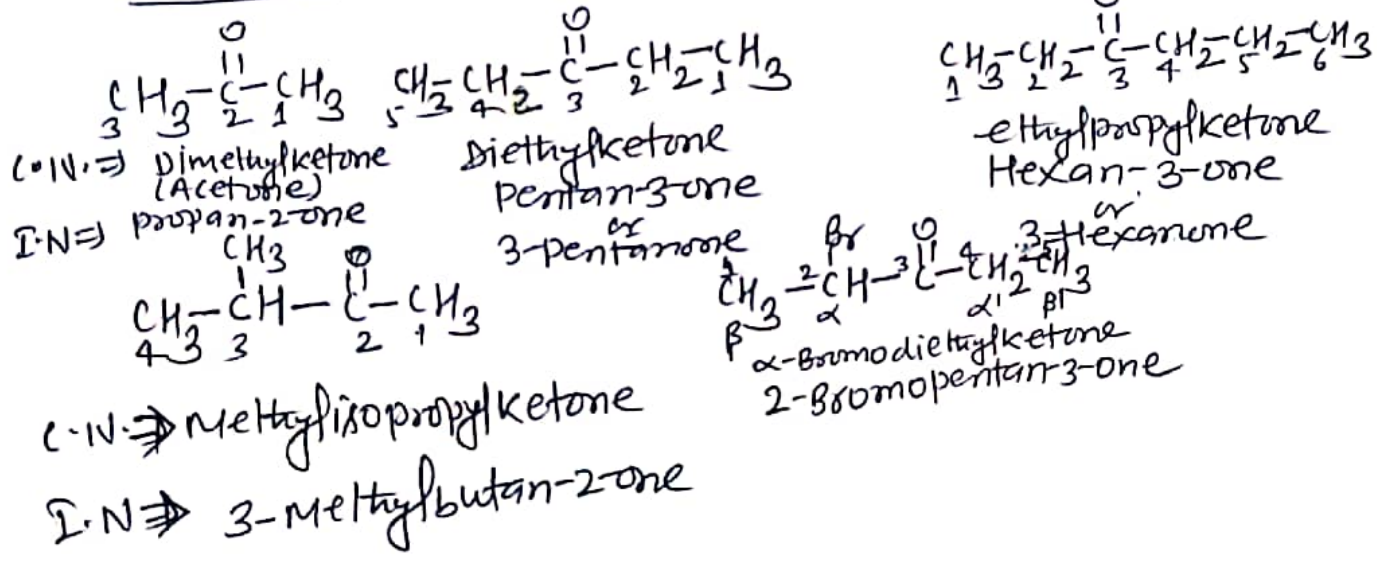 O
||
CH3-C-CH3
3 2 1
C.N. ⇒ Dimethylketone
(Acetone)
I.N ⇒ propan-2-one
O
||
CH3-CH2-C-CH2-CH3
5 4 3 2 1
Diethylketone
Pentan-3-one
or
3-pentanone
O
||
CH3-CH2-C-CH2-CH2-CH3
1 2 3 4 5 6
ethylpropylketone
Hexan-3-one
or
3-Hexanone
CH3 O
| ||
CH3-CH-C-CH3
4 3 2 1
C.N. ⇒ Methylisopropylketone
I.N ⇒ 3-Methylbutan-2-one
Br O
||
1 2 3 4 5
CH3-CH-C-CH2-CH3
β α α' β'
α-Bromodiethylketone
2-Bromopentan-3-one